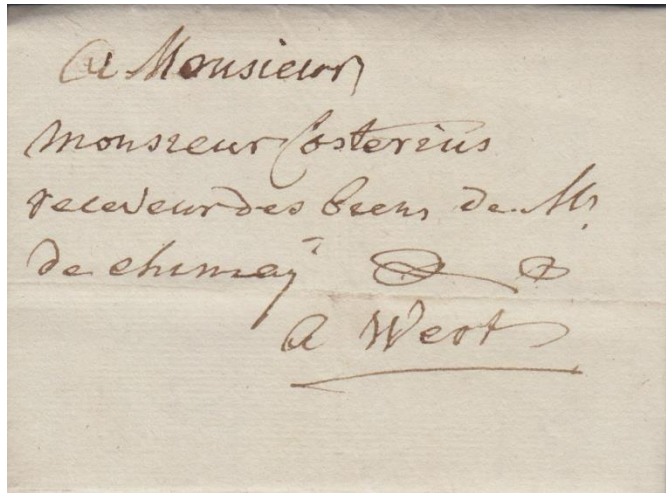 A Monsieur
Monsieur Costerius
receveur des biens de Mr
de chimaÿ
a Wert